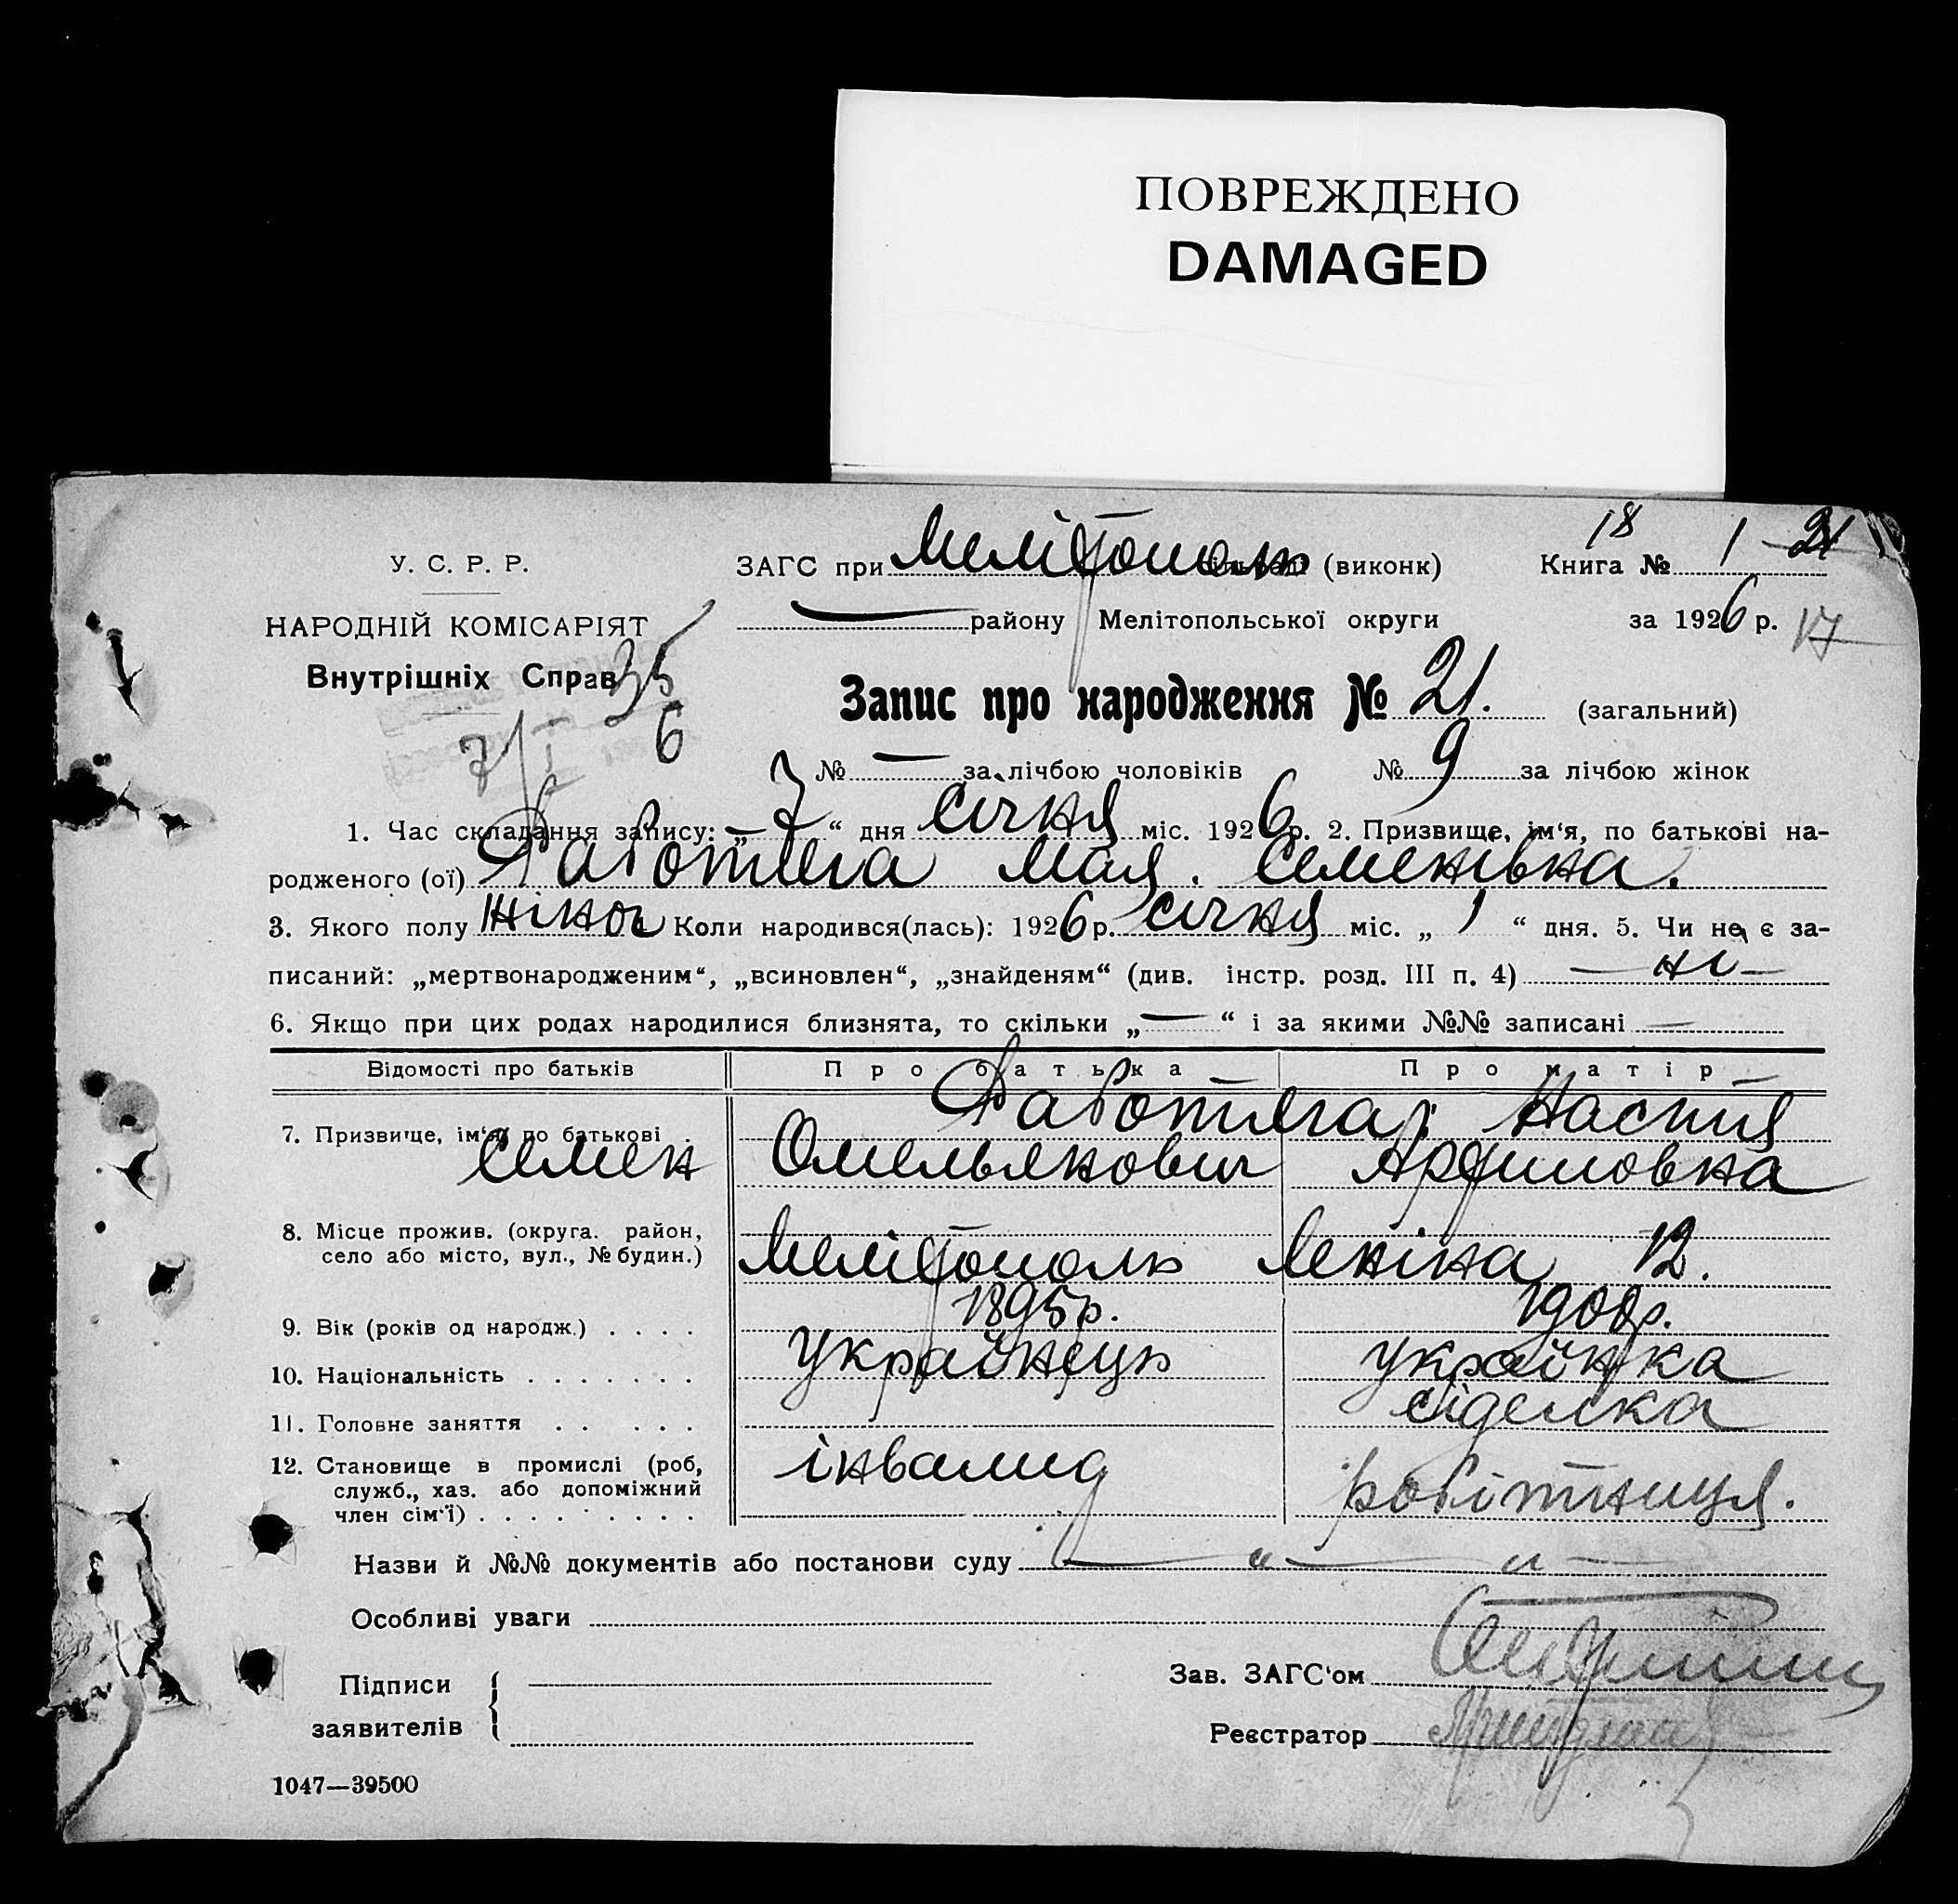 ПОВРЕЖДЕНО
DAMAGED
18
У. С. Р. Р.
ЗАГС при Мелітополь (виконк) Книга № 1 21
НАРОДНІЙ КОМІСАРІЯТ
— району Мелітопольської округи за 1926 р. 17
Внутрішніх Справ 35
Запис про народження № 21. (загальний)
7/I 6
№ — за лічбою чоловіків № 9 за лічбою жінок
1. Час складання запису: „ 7 “ дня січня міс. 1926 р. 2. Призвище, ім‘я, по батькові на-
родженого (ої) Работяга Мая. Семенівна.
3. Якого полу жіноч Коли народився(лась): 1926 р. січня міс. „ 1 “ дня. 5. Чи не є за-
писаний: „мертвонародженим“, „всиновлен“, „знайденям“ (див. інстр. розд. III п. 4) — ні —
6. Якщо при цих родах народилися близнята, то скільки „ — “ і за якими №№ записані —
Відомості про батьків Про батька Про матір
Работяга, Настя
7. Призвище, ім‘я, по батькові .
Семен Омельянович Арфиловна
8. Місце прожив. (округа. район,
село або місто, вул., № будин.) Мелітополь Леніна 12.
9. Вік (років од народж.) . . . . 1895 р. 1900 р.
10. Національність . . . . . . . українець українка
11. Головне заняття . . . . . сіделка
12. Становище в промислі (роб,
служб., хаз. або допоміжний
член сім‘ї) . . . . . . . . . інвалид робітниця.
Назви й №№ документів або постанови суду — „ — „ —
Особливі уваги
Підписи
заявителів
Зав. ЗАГС‘ом
Реєстратор
1047—39500